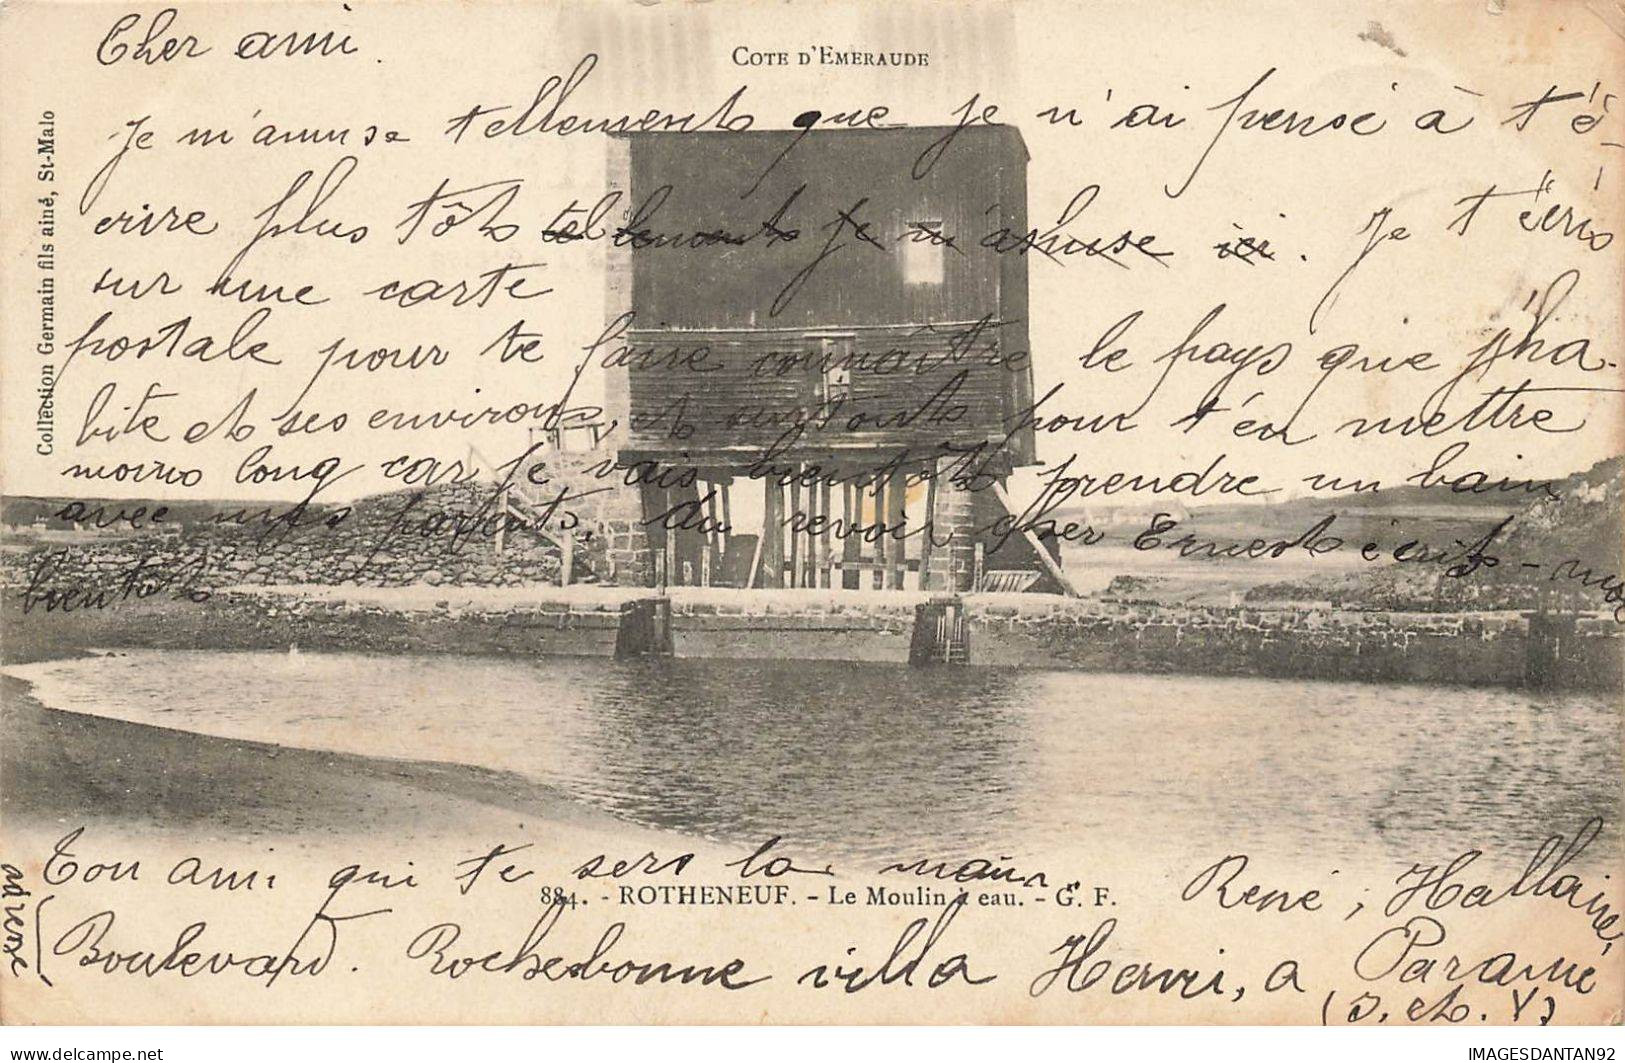 Cher ami.
COTE D'EMERAUDE
Collection Germain fils ainé, St-Malo
Je m'amuse tellement que je n'ai pensé à t'é-
crire plus tôt tellement je m'amuse ici. Je t'écris
sur une carte
postale pour te faire connaître le pays que j'ha-
bite et ses environs, et surtout pour t'en mettre
moins long car je vais bientôt prendre un bain
avec mes parents. du revoir cher Ernest écrit-moi
bientôt.
Ton ami qui te sers la main. René, Hallaire,
884. - ROTHENEUF. - Le Moulin à eau. - G. F.
adresse
Boulevard. Rochebonne villa Henri, a Paramé
(I. et V)
IMAGESDANTAN92